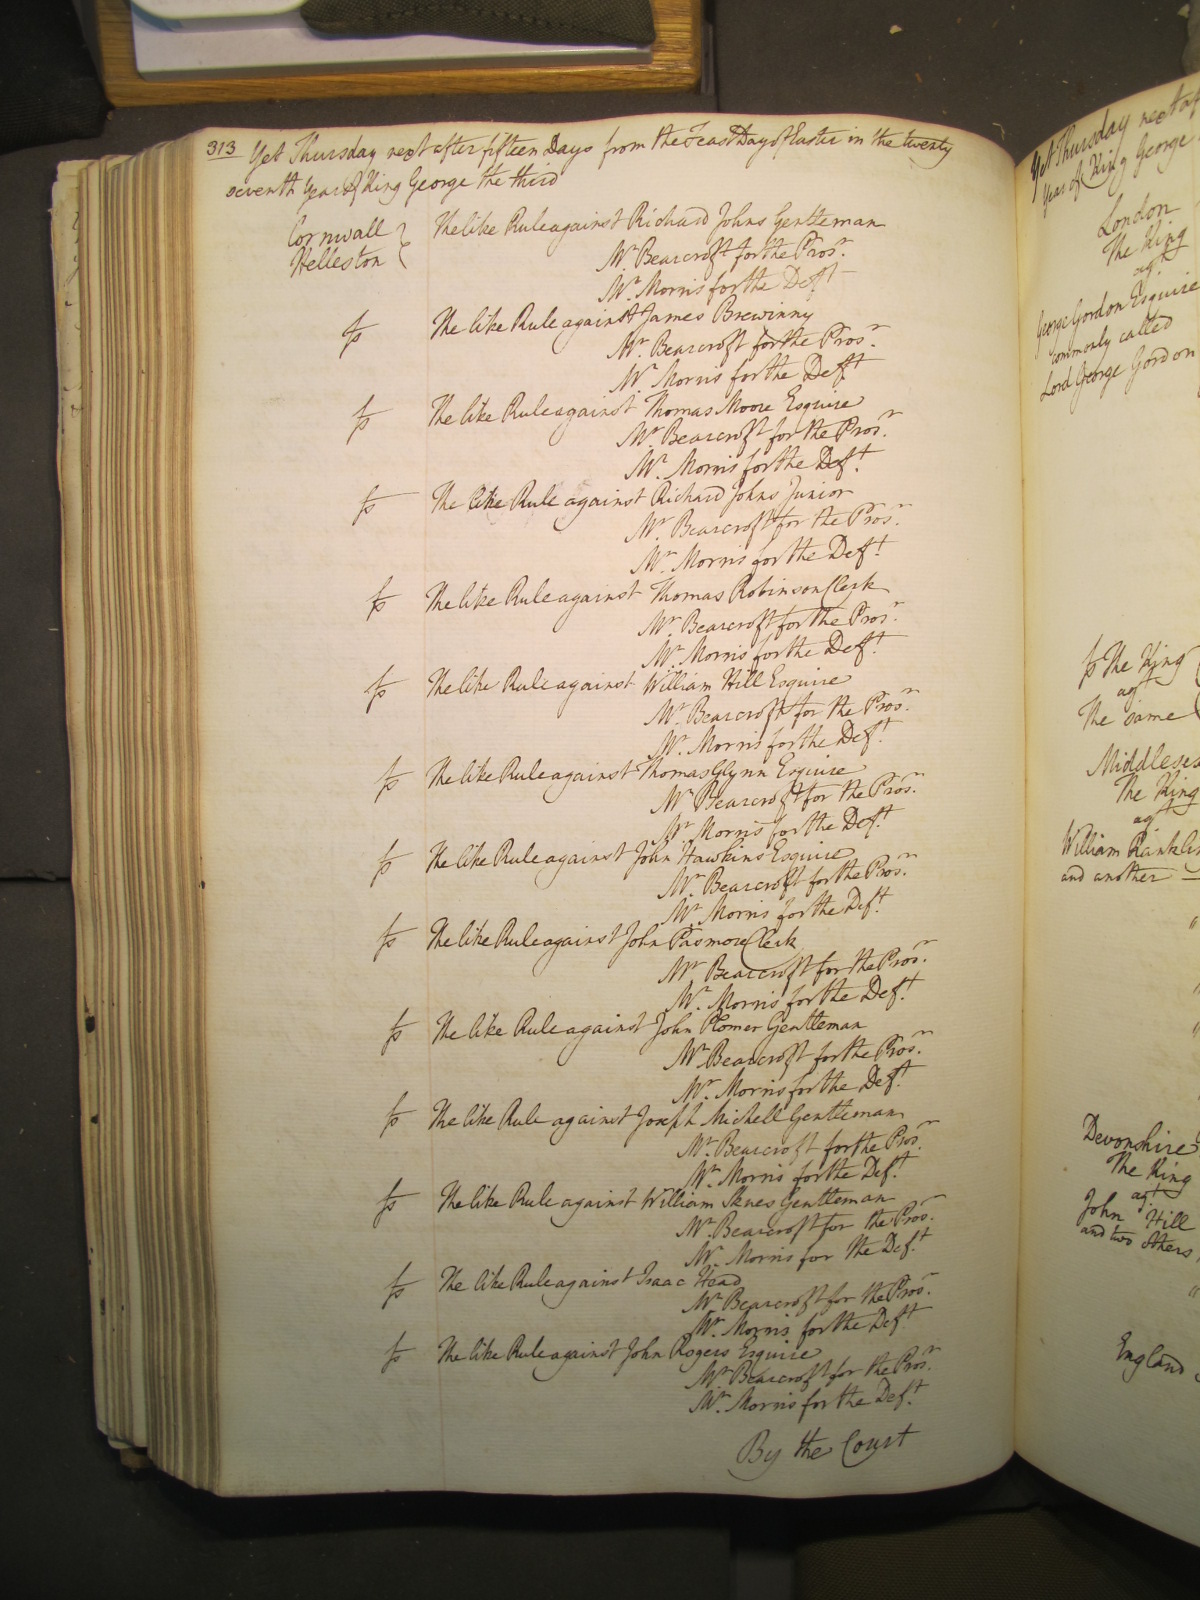 313 Yet Thursday next after fifteen Days from the Feast Day of Easter in the twenty
seventh Year of King George the third
Cornwall
Helleston
The like Rule against Richard Johns Gentleman
Mr. Bearcroft for the Prosr.
Mr. Morris for the Deft
fs The like Rule against James Brewinny
Mr. Bearcroft for the Prosr.
Mr. Morris for the Deft
fs The like Rule against Thomas Moore Esquire
Mr. Bearcroft for the Prosr.
Mr. Morris for the Deft.
fs The like Rule against Richard Johns Junior
Mr. Bearcroft for the Prosr.
Mr. Morris for the Deft.
fs The like Rule against Thomas Robinson Clerk
Mr. Bearcroft for the Prosr.
Mr. Morris for the Deft.
fs The like Rule against William Hill Esquire
Mr. Bearcroft for the Prosr.
Mr. Morris for the Deft.
fs The like Rule against Thomas Glynn Esquire
Mr Bearcroft for the Prosr.
Mr. Morris for the Deft.
fs The like Rule against John Hawkins Esquire
Mr. Bearcroft for the Prosr.
Mr. Morris for the Deft.
fs The like Rule against John Pasmore Clerk
Mr. Bearcroft for the Prosr.
Mr. Morris for the Deft.
fs The like Rule against John Plomer Gentleman
Mr. Bearcroft for the Prosr.
Mr. Morris for the Deft.
fs The like Rule against Joseph Michell Gentleman
Mr. Bearcroft for the Prosr.
Mr. Morris for the Deft.
fs The like Rule against William Gentleman
Mr. Bearcroft for the Prosr.
Mr. Morris for the Deft.
fs The like Rule against Isaac Head
Mr. Bearcroft for the Prosr.
Mr. Morris for the Deft
fs The like Rule against John Rogers Esquire
Mr. Bearcroft for the Prosr.
Mr. Morris for the Deft.
By the Court
Yet Thursday next
Year of King George
London
The King
agt
George Gordon Esquire
commonly called
Lord George Gordon
fs The King
agt
The same
The King
agt
William
and another
Devonshire
The King
agt
John Hill
and two others
England